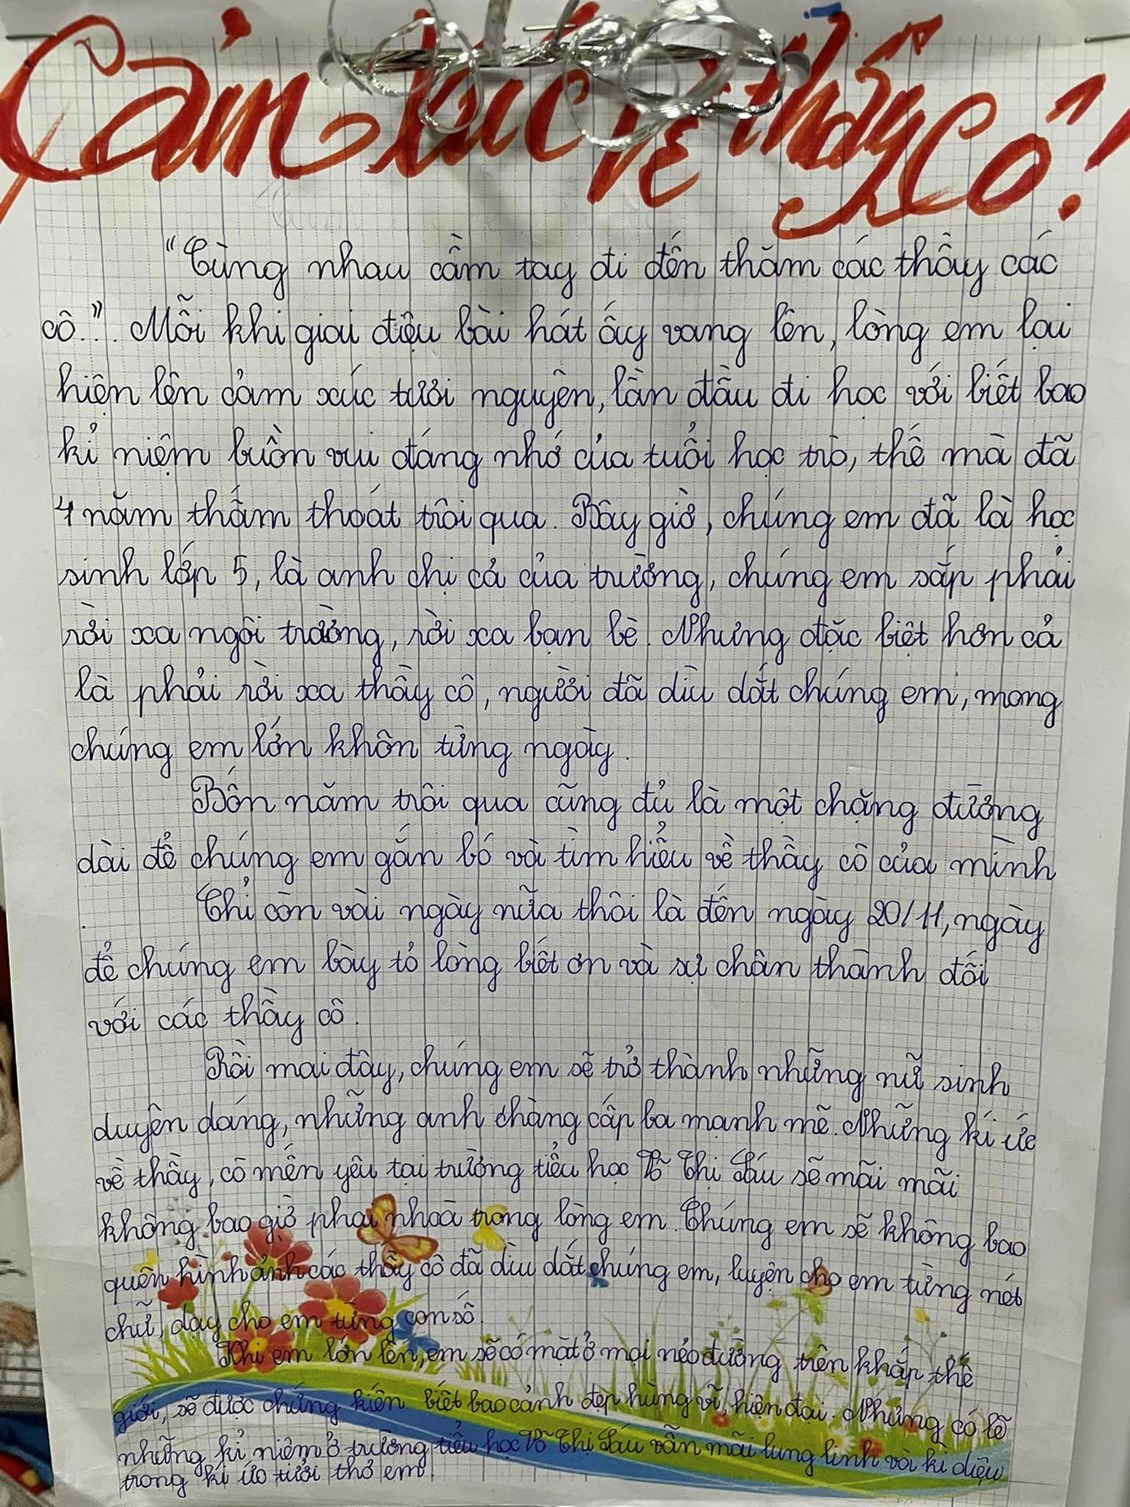 Cảm xúc về thầy cô!
"Cùng nhau cầm tay đi đến thăm các thầy các
cô..". Mỗi khi giai điệu bài hát ấy vang lên, lòng em lại
hiện lên cảm xúc tươi nguyên, lần đầu đi học với biết bao
kỉ niệm buồn vui đáng nhớ của tuổi học trò, thế mà đã
4 năm thấm thoát trôi qua. Bây giờ, chúng em đã là học
sinh lớp 5, là anh chị cả của trường, chúng em sắp phải
rời xa ngôi trường, rời xa bạn bè. Nhưng đặc biệt hơn cả
là phải rời xa thầy cô, người đã dìu dắt chúng em, mong
chúng em lớn khôn từng ngày.
Bốn năm trôi qua cũng đủ là một chặng đường
dài để chúng em gắn bó và tìm hiểu về thầy cô của mình
Chỉ còn vài ngày nữa thôi là đến ngày 20/11, ngày
để chúng em bày tỏ lòng biết ơn và sự chân thành đối
với các thầy cô.
Rồi mai đây, chúng em sẽ trở thành những nữ sinh
duyên dáng, những anh chàng cấp ba mạnh mẽ. Những kí ức
về thầy, cô mến yêu tại trường tiểu học Võ Thị Sáu sẽ mãi mãi
không bao giờ phai nhoà trong lòng em. Chúng em sẽ không bao
quên hình ảnh các thầy cô đã dìu dắt chúng em, luyện cho em từng nét
chữ, dạy cho em từng con số.
Khi em lớn lên, em sẽ có mặt ở mọi nẻo đường trên khắp thế
giới, sẽ được chứng kiến biết bao cảnh đẹp hùng vĩ, hiện đại. Nhưng có lẽ
những kỉ niệm ở trường tiểu học Võ Thị Sáu vẫn mãi lung linh và kì diệu
trong kí ức tuổi thơ em!